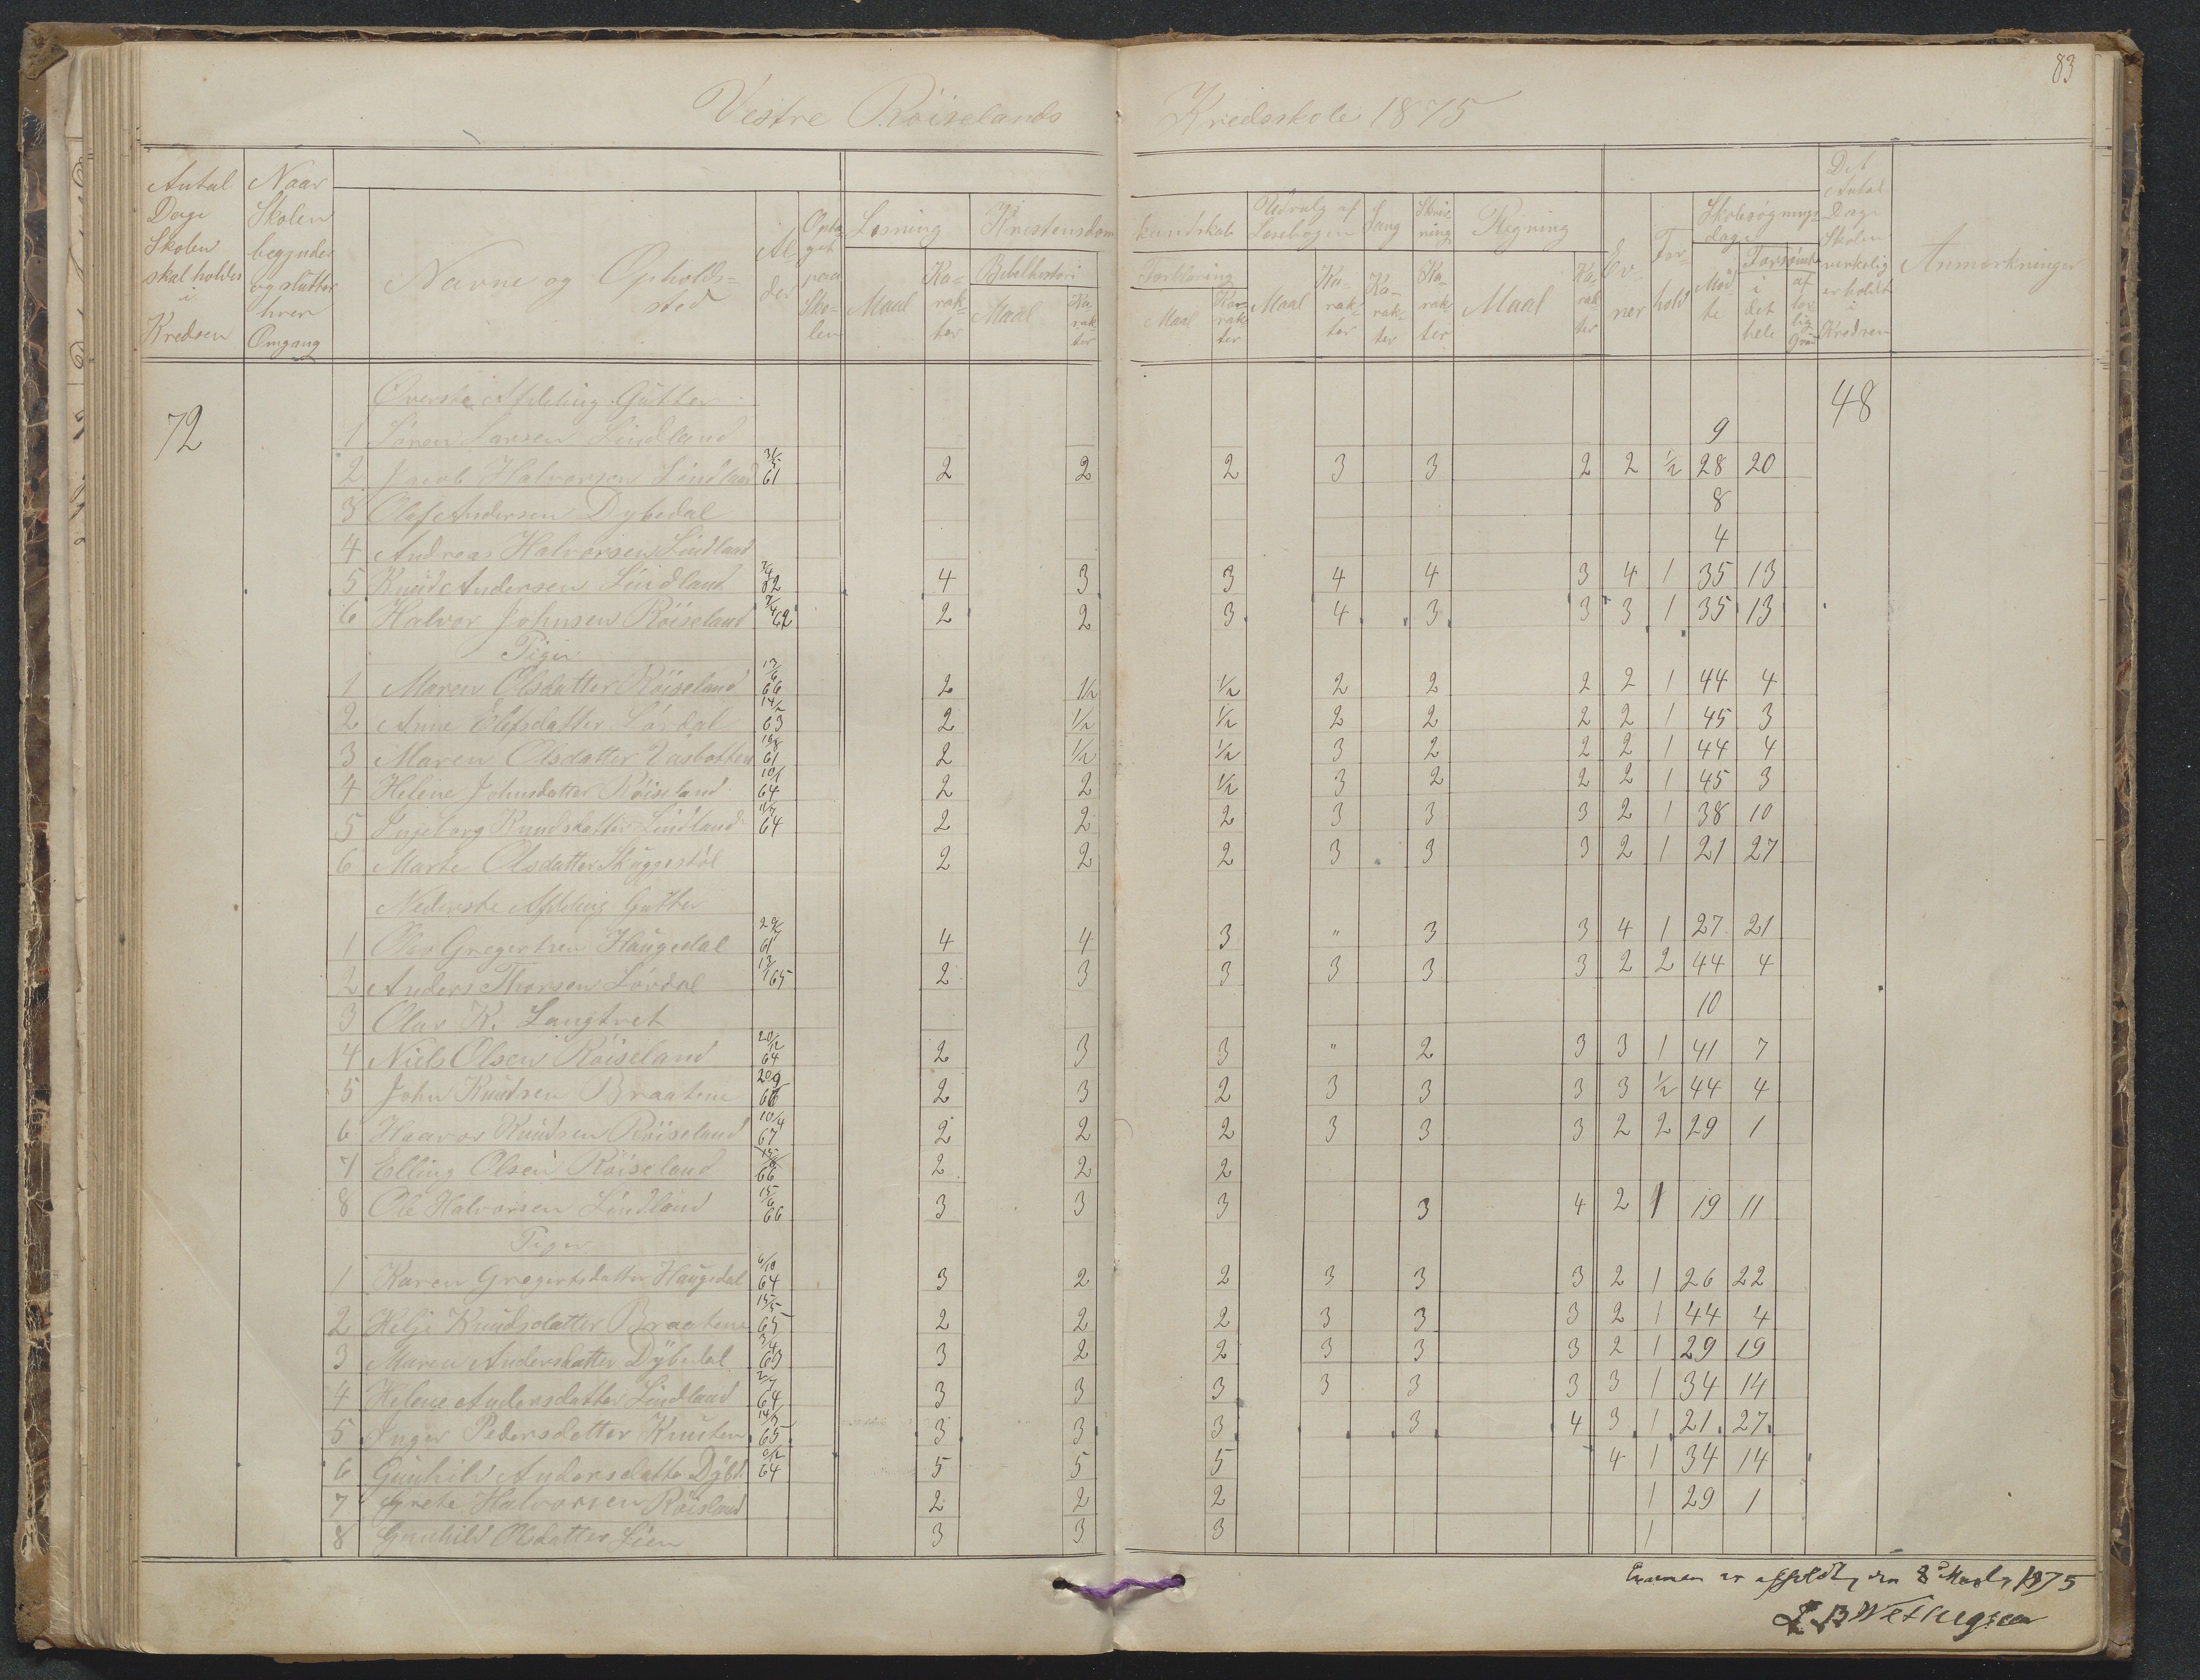 83
Vestre Röiselands Kredsskole 1875
Antal Dage Skolen skal holdes i Kredsen
Naar Skolen begynder og slutter hver Omgang
Navne og Opholdssted
Alder
Optaget paa Skolen
Læsning
Maal
Karakter
Kristendomskundskab
Bibelhistori
Maal
Karakter
Forklaring
Maal
Karakter
Udvalg af Læsebogen
Maal
Karakter
Sang
Karakter
Skrivning
Karakter
Regning
Maal
Karakter
Evner
Forhold
Skolesøgningsdage
Mødte
Forsømte
i det hele
af lovlig Grund
Det Antal Dage Skolen virkelig er holdt i Kredsen
Anmærkninger
Øverste Afdeling Gutter 48
72
1 Sören Larsen Lindland 9
2 Jacob Halvorsen Lindland 31/5 61 2 2 2 3 3 2 2 1/2 28 20
3 Olaf Andersen Dybedal 8
4 Andreas Halvorsen Lindland 4
5 Knud Andersen Lindland 62 4 3 3 4 4 3 4 1 35 13
6 Halvor Johnsen Röiseland 7/4 62 2 2 3 4 3 3 3 1 35 13
Piger
1 Maren Olsdatter Röiseland 13/6 66 2 1/2 1/2 2 2 2 2 1 44 4
2 Anne Elefsdatter Lördal 14/2 63 2 1/2 1/2 2 2 2 2 1 45 3
3 Maren Olsdatter Vasbotten 61 2 1/2 1/2 3 2 2 2 1 44 4
4 Helene Johnsdatter Röiseland 10/1 64 2 2 1/2 3 2 2 2 1 45 3
5 Ingeborg Knudsdatter Lindland 64 2 2 2 3 3 3 2 1 38 10
6 Marte Olsdatter Skuggestöl 2 2 2 3 3 3 2 1 21 27
Nederste Afdeling Gutter
1 Olav Gregertsen Haugedal 61 4 4 3 " 3 3 4 1 27 21
2 Anders Thorsen Lördal 13/1 65 2 3 3 3 3 3 2 2 44 4
3 Olav K. Langtvet 10
4 Niels Olsen Röiseland 20/12 64 2 3 3 " 2 3 3 1 41 7
5 John Knudsen Braatene 20/9 66 2 3 2 3 3 3 3 1/2 44 4
6 Haavor Knudsen Röiseland 10/4 67 2 2 2 3 3 3 2 2 29 1
7 Elling Olsen Röiseland 15/6 66 2 2 2
8 Ole Halvorsen Lindland 15/6 66 3 3 3 3 4 2 1 19 11
Piger
1 Karen Gregertsdatter Haugedal 6/10 64 3 2 2 3 3 3 2 1 26 22
2 Helje Knudsdatter Braatene 15/5 65 2 2 2 3 3 3 2 1 44 4
3 Maren Andersdatter Dybedal 3/4 63 3 2 2 3 3 3 2 1 29 19
4 Helene Andersdatter Lindland 2/7 64 3 3 3 3 3 3 3 1 34 14
5 Inger Pedersdatter Knuten 65 3 3 3 3 4 3 1 21 27
6 Gunhild Andersdatter Dybd. 64 5 5 5 4 1 34 14
7 Grete Halvorsen Röisland 2 2 2 1 29 1
8 Gunhild Olsdatter Lien 3 3 3 1
Examen er afholdt den 8de Marts 1875